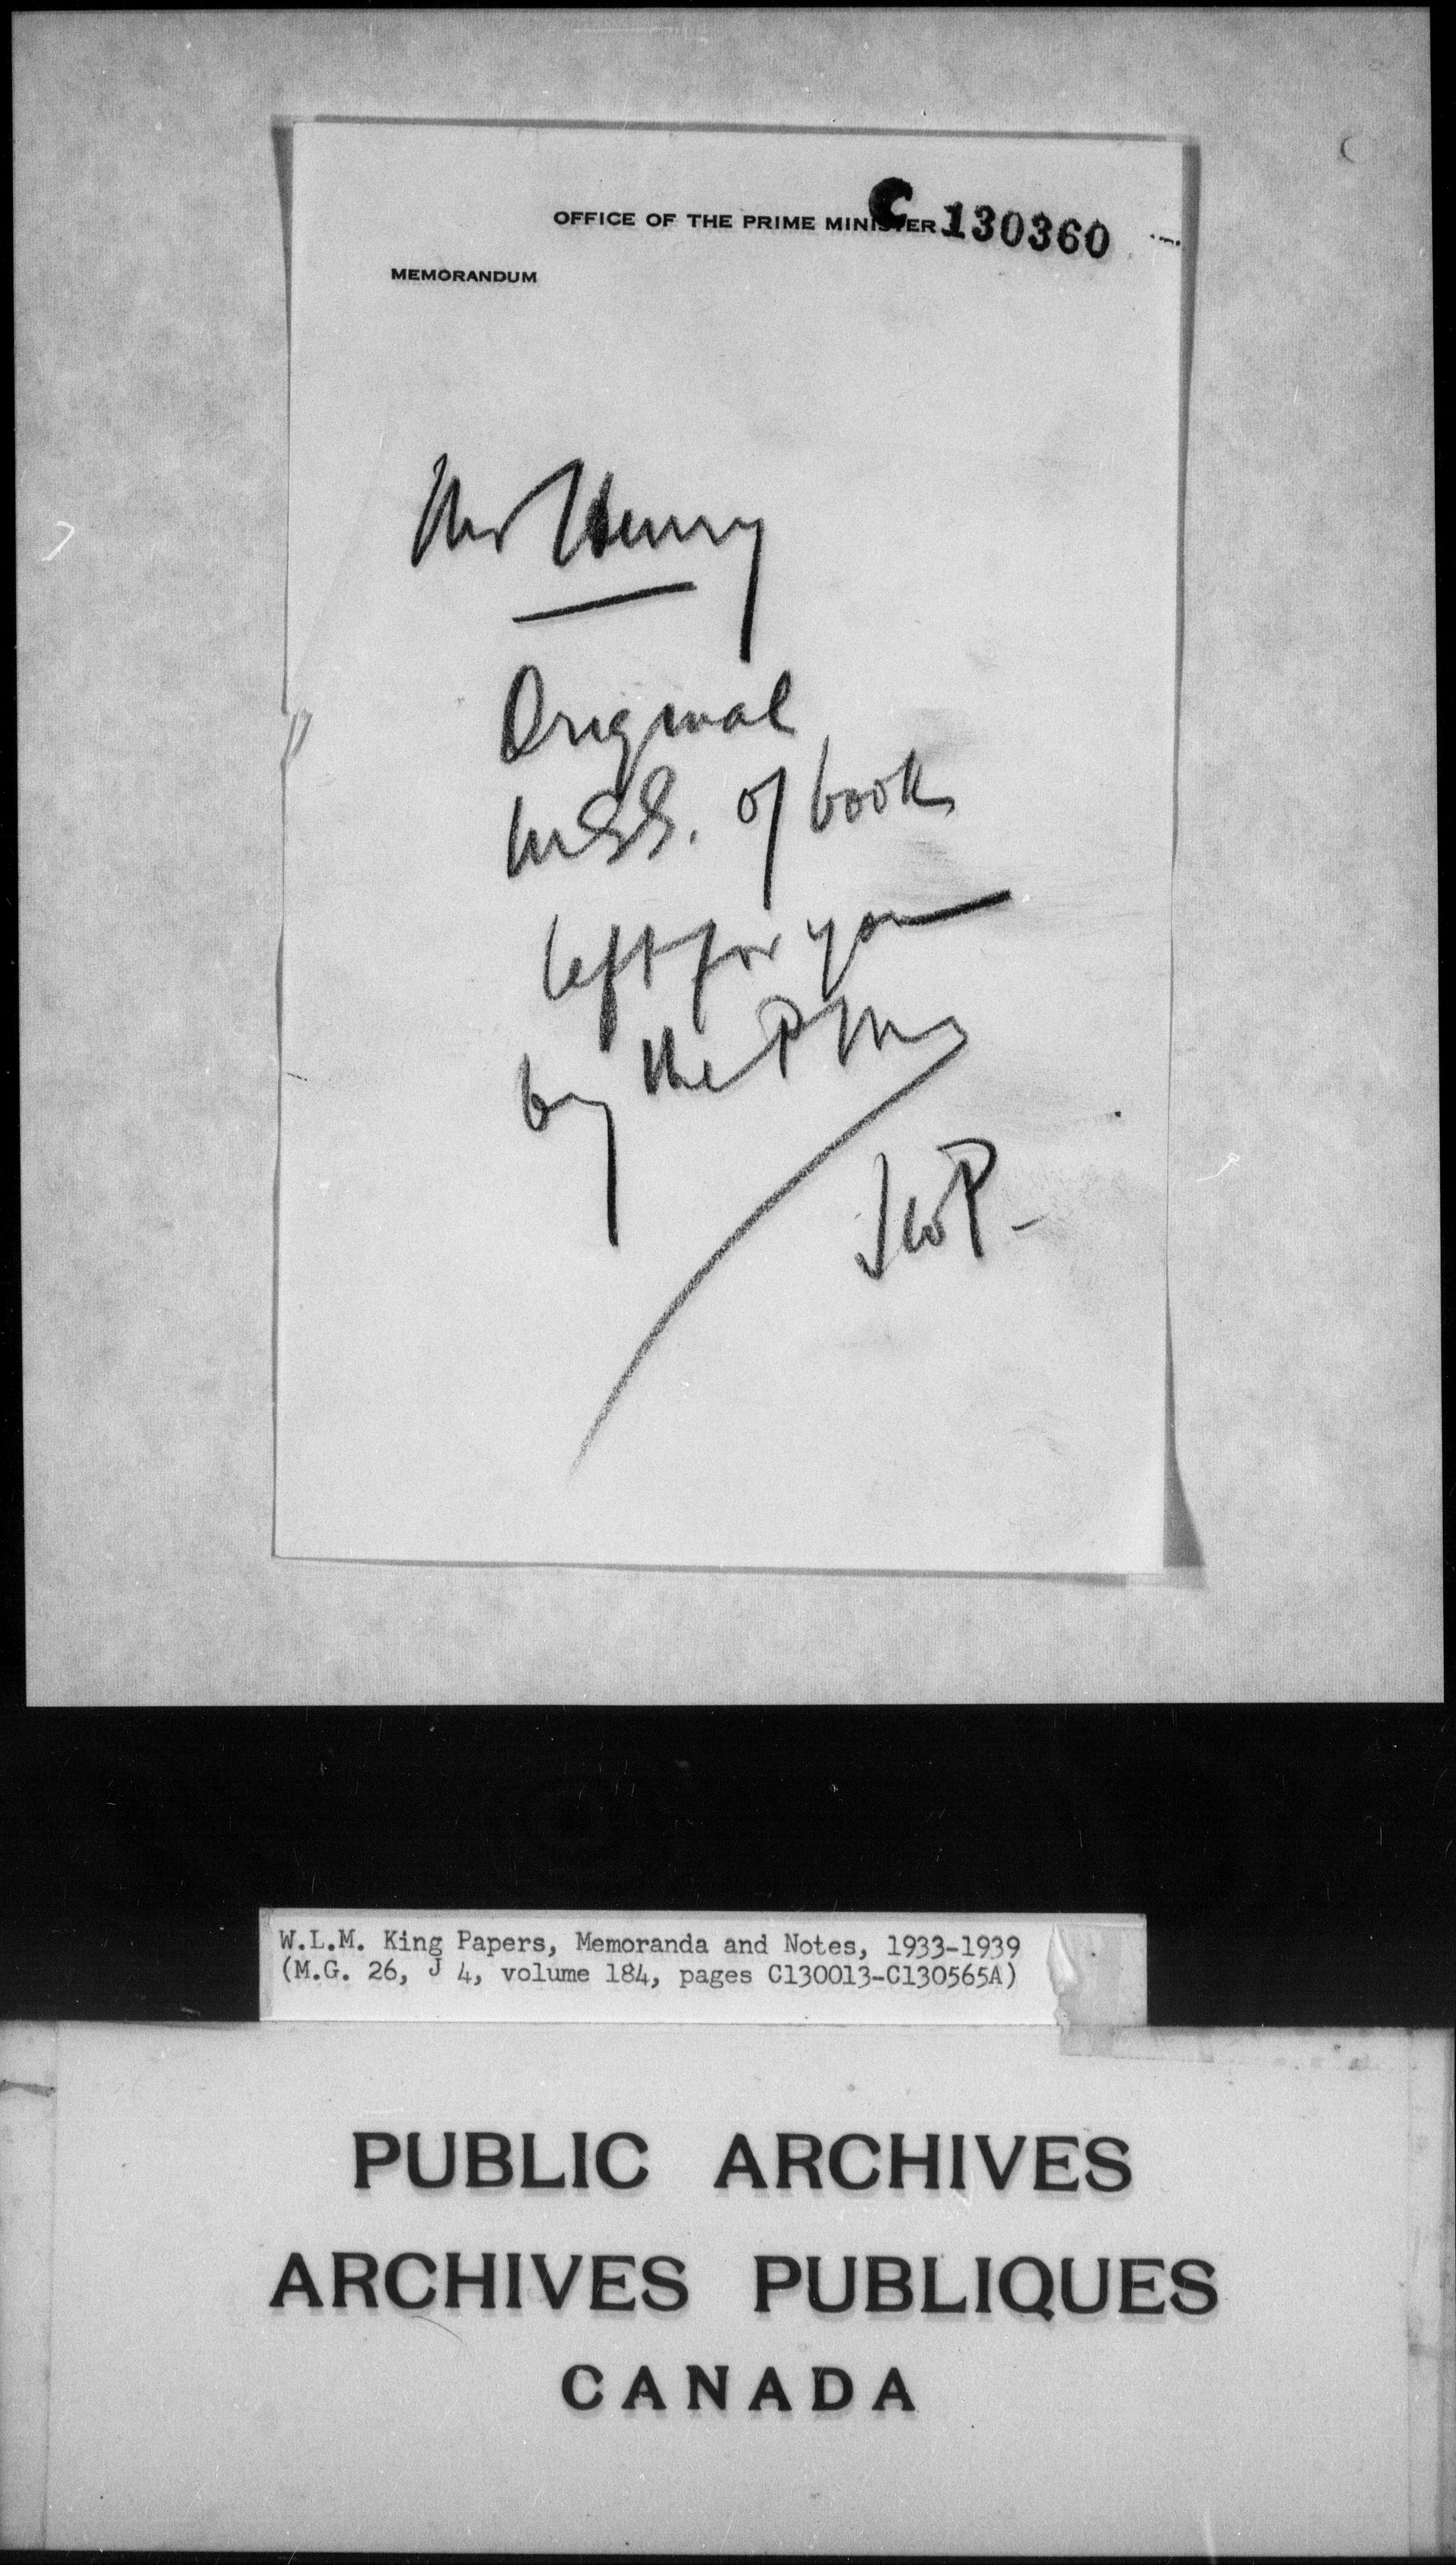 OFFICE OF THE PRIME MINISTER C 130360
MEMORANDUM
Mr Henry
Original
MSS. of book
left for you
by the P M
JWP-
W.L.M. King Papers, Memoranda and Notes, 1933-1939
(M.G. 26, J 4, volume 184, pages C130013-C130565A)
PUBLIC ARCHIVES
ARCHIVES PUBLIQUES
CANADA